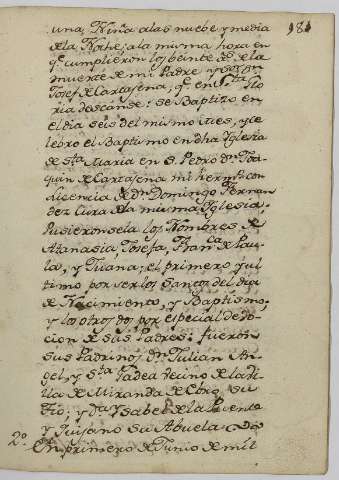 181
una Niña a las nuebe y media
de la Noche; a la misma hora en
q.e cumplieron los beinte ds. de la
muerte de mi Padre y Sor. Dn.
Josef de Cartagena, q.e en Sta. Glo
ria descanse: se Baptizo en
el dia seis del mismo Mes, y ce
lebro el Baptismo en dha Iglesia
de Sta. Maria en S. Pedro Dn. Joa
quin de Cartagena mi Herm.o con
Licencia de Dn. Domingo Fernan
dez Cura de la misma Iglesia.
Pusieronsela los Nombres de
Atanasia, Josefa, Fran.ca de Pau
la, y Juana; el primero y ul
timo por ser los Santos del dia
de Nacimiento, y Baptismo;
y los otros dos por especial debo
cion de sus Padres: fueron
sus Padrinos Dn. Julian An
gel, y Sta. Gadea vecino de la Vi
lla de Miranda de Ebro su
Tio; y Da. Ysabel de la Puente
y Guisano su Abuela
2.o En primero de Junio de mil